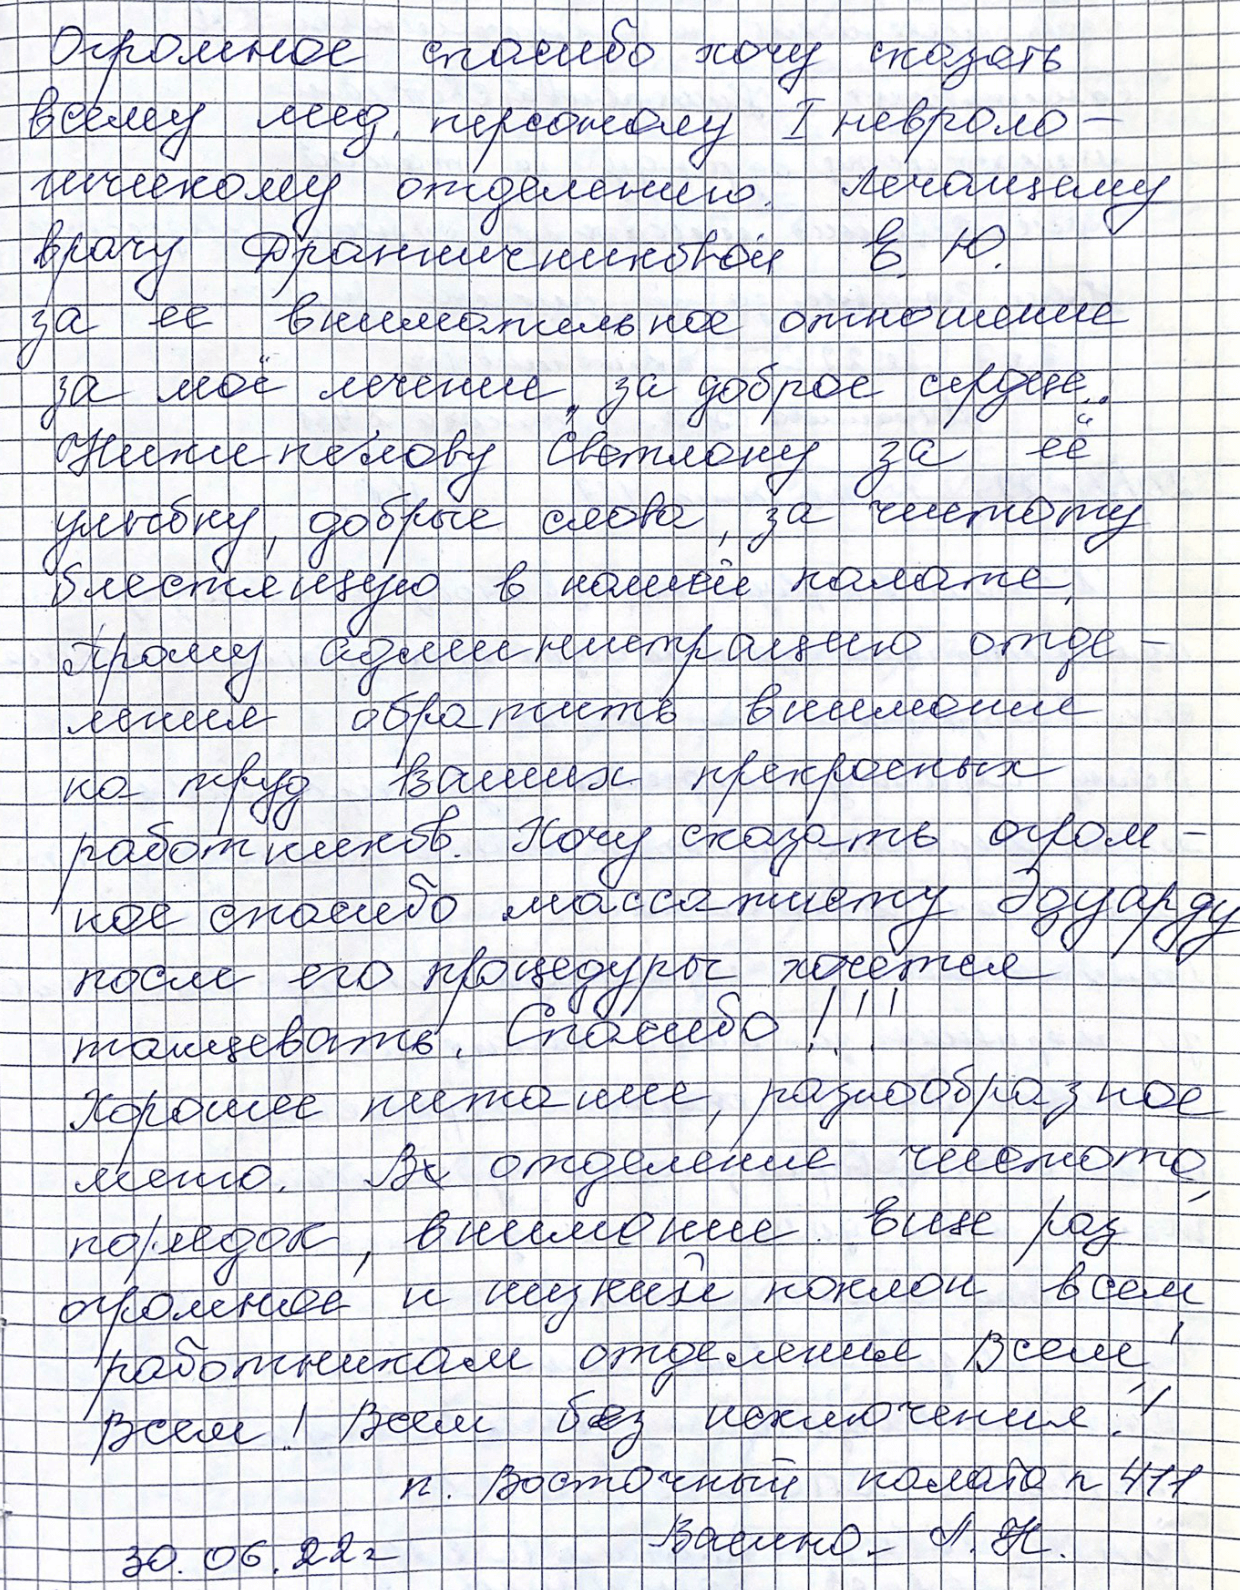 Огромное спасибо хочу сказать
всему мед. персоналу I невроло-
гическому отделению. Лечащему
врачу Дранничниковой Е. Ю.
за ее внимательное отношение
за моё лечение, за доброе сердце..
Светлану за её
улыбку, добрые слова, за чистоту
блестящую в нашей палате.
Прошу администрацию отде-
ления обратить внимание
на труд ваших прекрасных
работников. Хочу сказать огром-
ное спасибо массажисту Эдуарду
после его процедуры хочется
танцевать. Спасибо!!!
Хорошее питание, разнообразное
меню. В отделение чистота,
порядок, внимание. Еще раз
огромное и низкий поклон всем
работникам отделения Всем!
Всем! Всем без исключения!!
п. Восточный палата n 411
30.06.22г Л. Н.